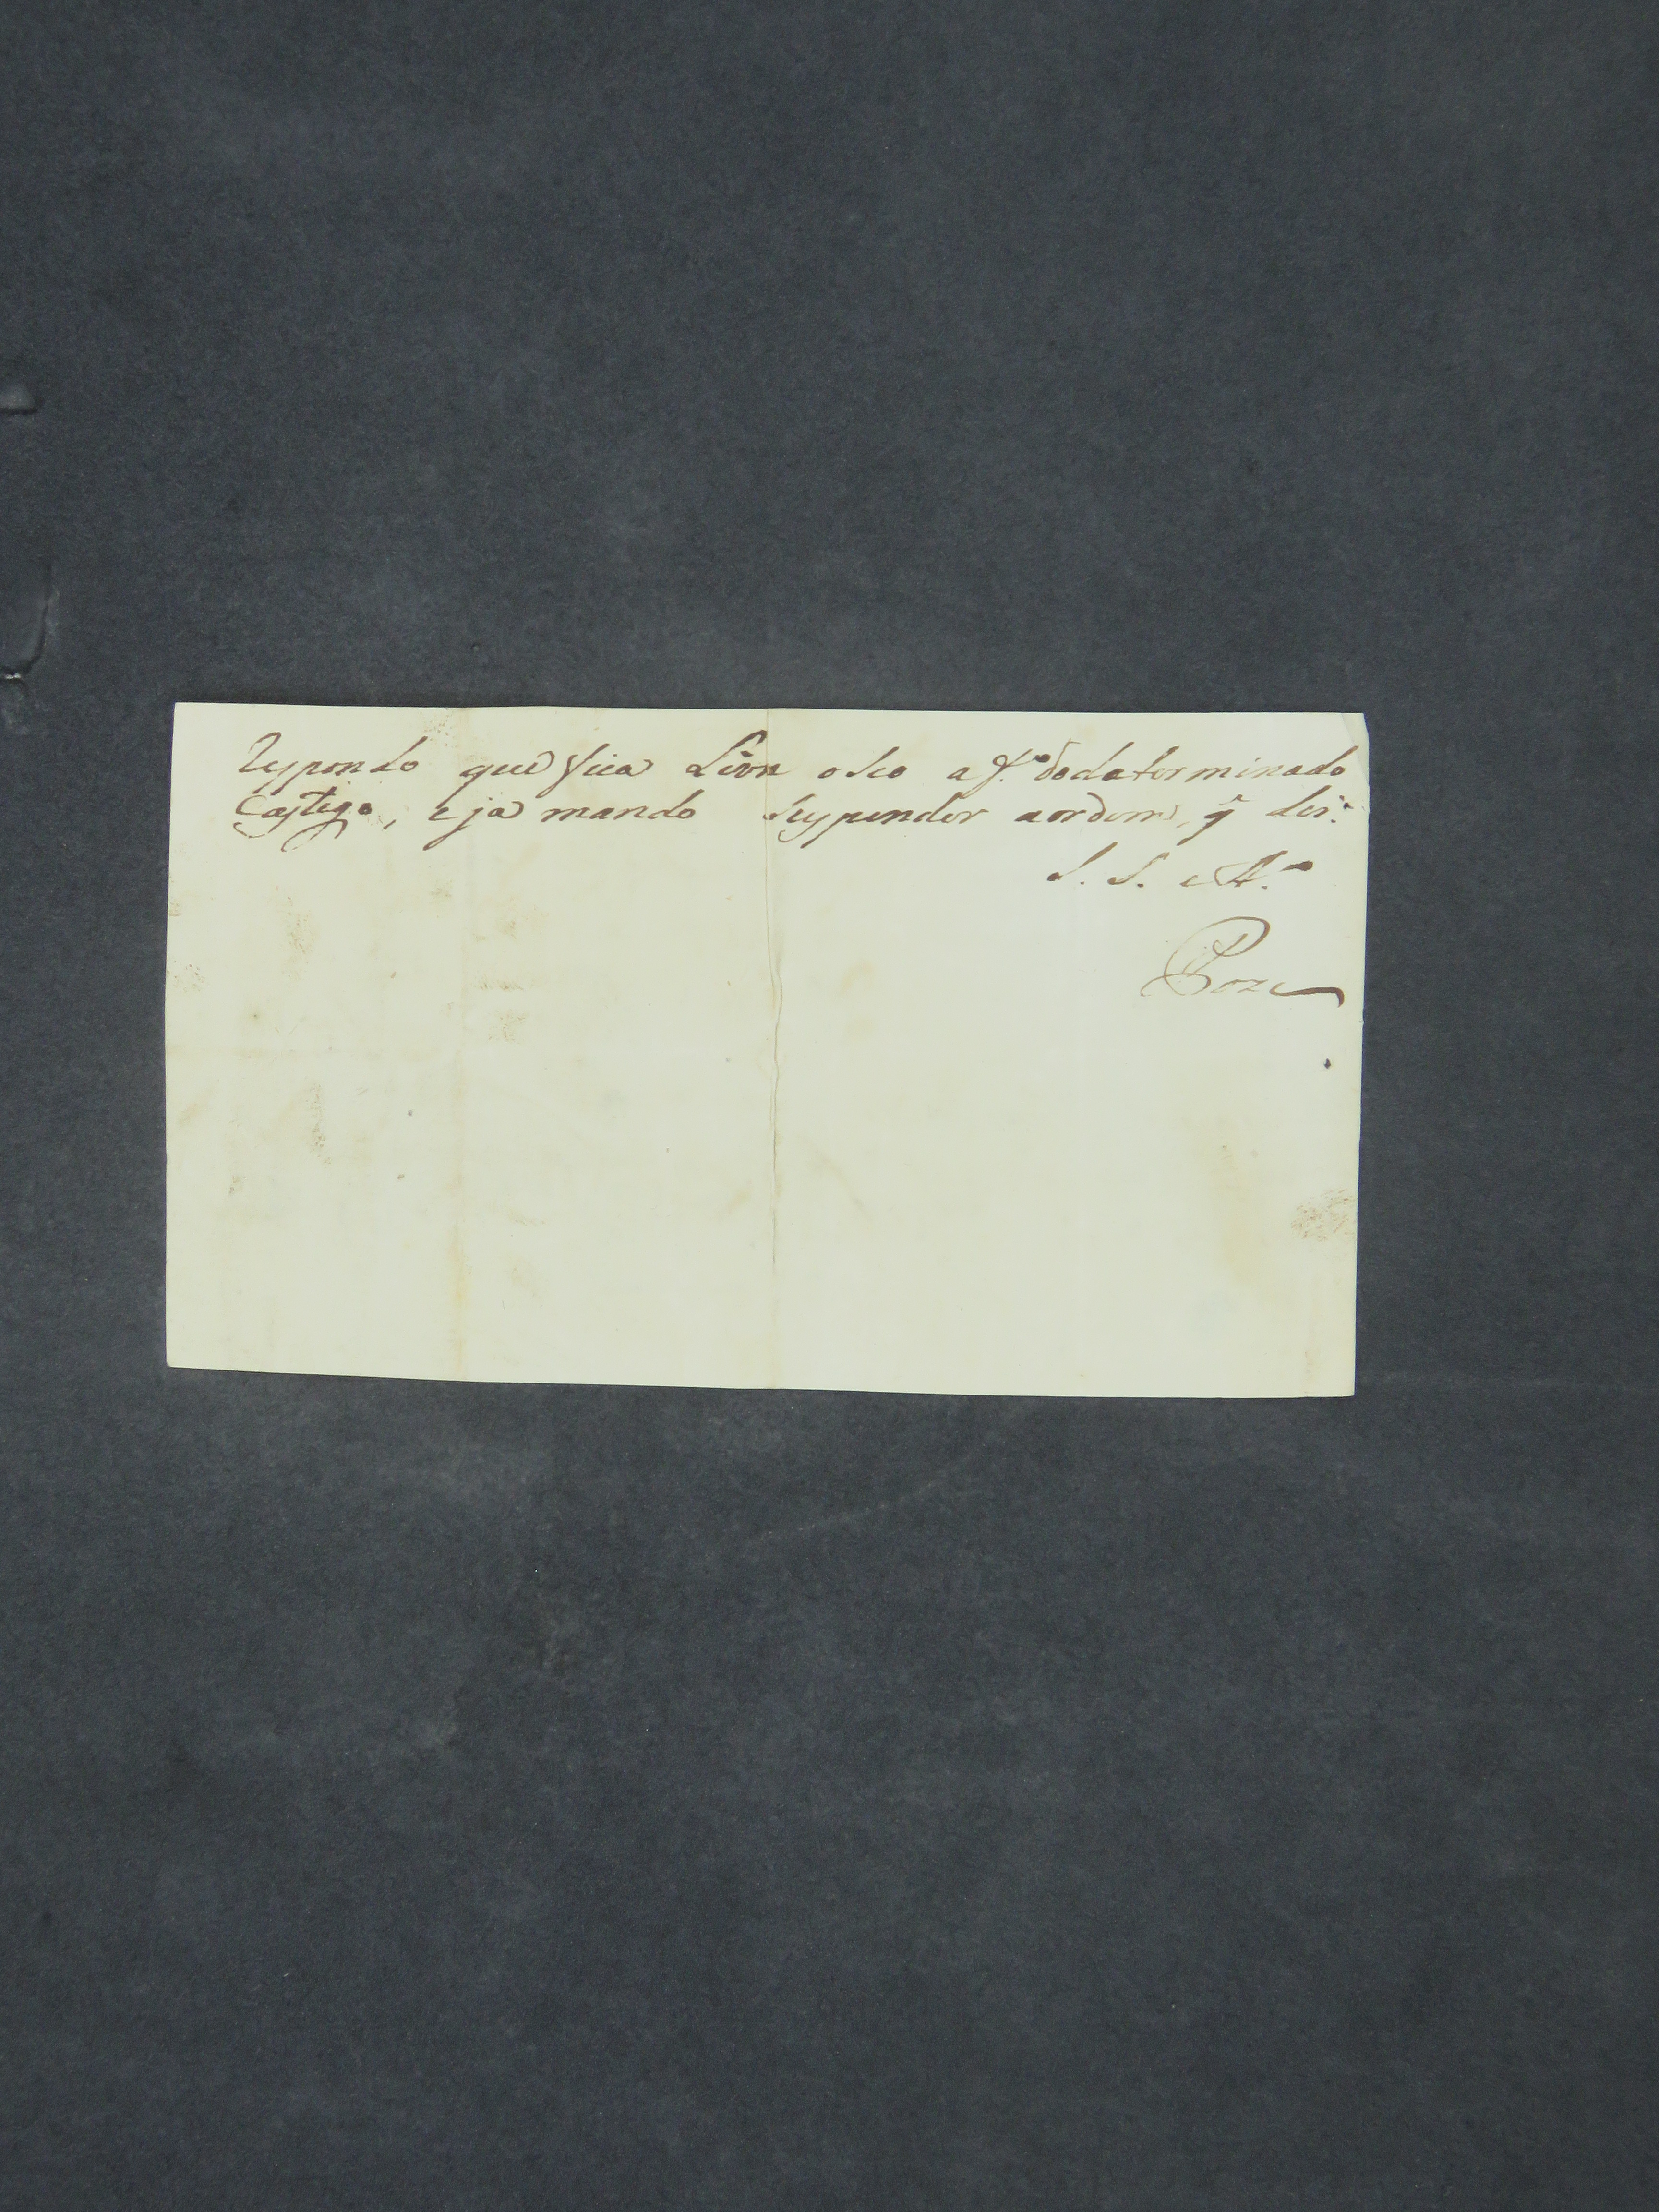 Respondo que fica Livre o seo af.do do determinado
Castigo, e ja mando suspender a ordem, q̃ dei.
S. S. e A.o
Roza